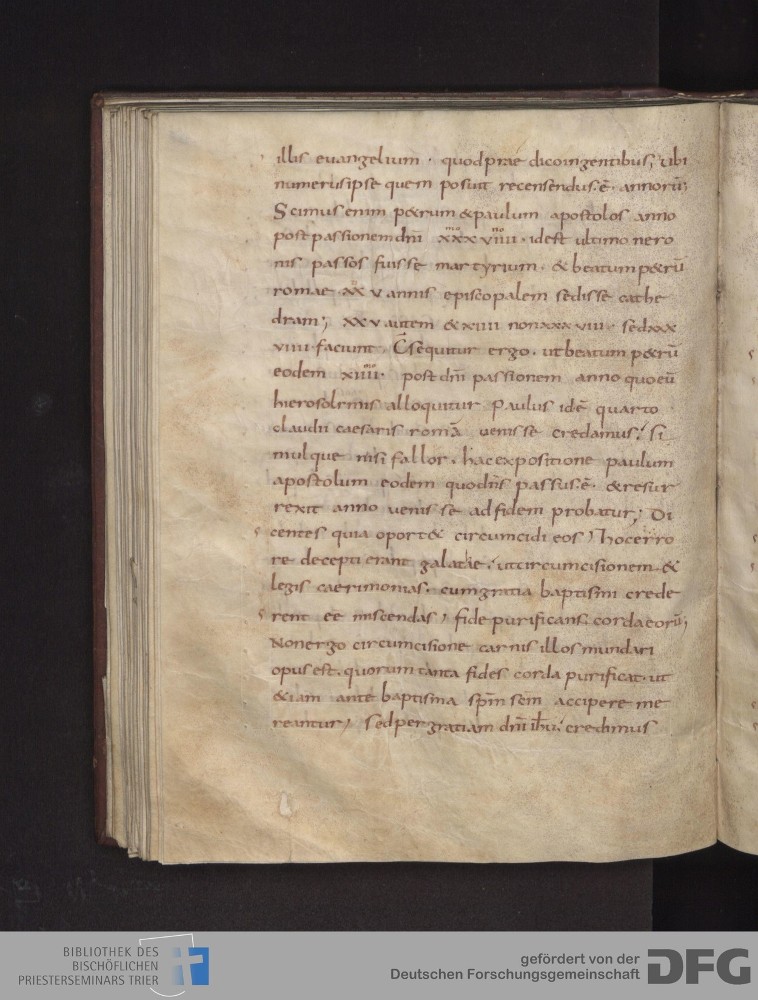 illis euangelium · quod prae dico in gentibus; ubi
numerus ipse quem posuit recensendus ē · annorū;
Scimus enim p&rum & paulum apostolos anno
post passionem dn̄i xxxviiii · id est ultimo nero
nis passos fuisse martyrium · & beatum p&rū
romae xxv annis episcopalem sedisse cathe
dram; xxv autem & xiiii non xxxviii · sed xxx
viiii · faciunt · Cn̄sequitur ergo · ut beatum p&rū
eodem xiiii · post dn̄i passionem anno quo eū
hierosolimis alloquitur paulus idē quarto
claudii caesaris romā uenisse credamus; si
mulque nisi fallor · hac expositione paulum
apostolum eodem quo dn̄s passus ē · & resur
rexit anno uenisse ad fidem probatur; Di
centes quia oport& circumcidi eos; hoc erro
re decepti erant galatae; ut circumcisionem · &
legis caerimonias · cum gratia baptismi crede
rent eē miscendas; fide purificans corda eorū;
Non ergo circumcisione carnis illos mundari
opus est · quorum tanta fides corda purificat · ut
&iam ante baptisma sp̄m sc̄m accipere me
reantur; sed per gratiam dn̄i ihu · credimus
BIBLIOTHEK DES
BISCHÖFLICHEN
PRIESTERSEMINARS TRIER
gefördert von der
Deutschen Forschungsgemeinschaft
DFG